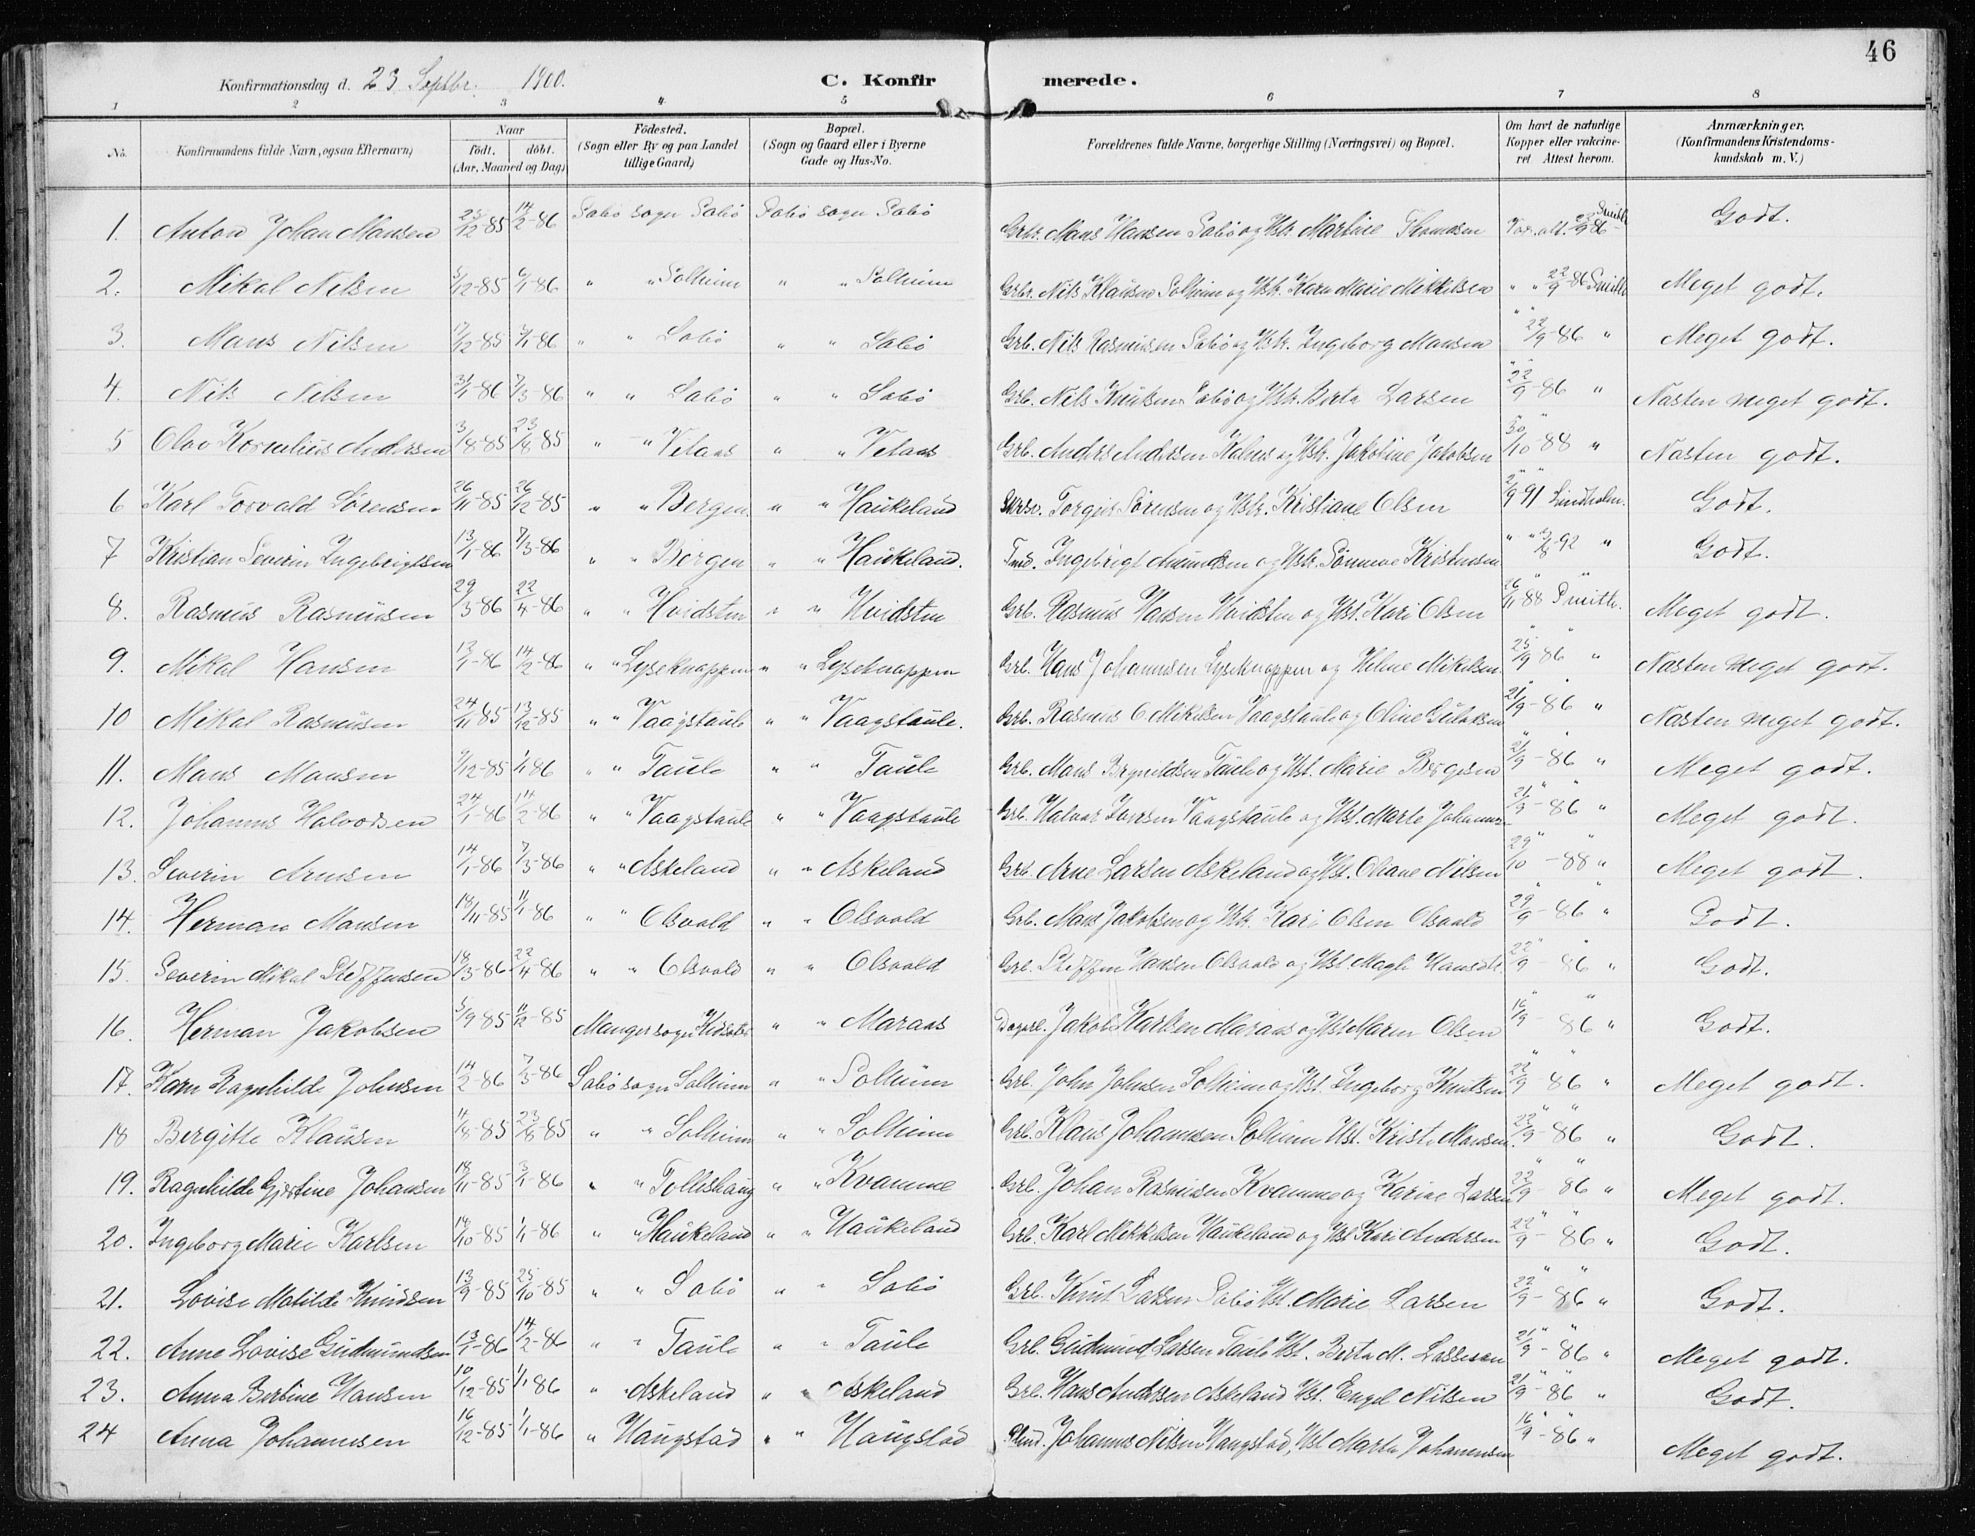 46
Konfirmationsdag d. 23 Septbr. 1900.
C. Konfirmerede.
1 2 3 4 5 6 7 8
No.
Konfirmandens fulde Navn, ogsaa Efternavn)
Naar
født. døbt.
(Aar, Maaned og Dag)
Fødested.
(Sogn eller By og paa Landet
tillige Gaard)
Bopæl.
(Sogn og Gaard eller i Byerne
Gade og Hus-No.
Forældrenes fulde Navne, borgerlige Stilling (Næringsvei) og Bopæl.
Om havt de naturlige
Kopper eller vakcine-
ret Attest herom.
Anmærkninger.
(Konfirmandens Kristendoms-
kundskab m. V.)
1. Anton Johan Mansen 25/12-85 14/2-86 Sabø sogn Sabø Sabø sogn Sabø Grbr. Mans Hansen Sabø og Hstr. Martine Thomasen Vac. att. 22/9 86 Smith Godt.
2. Mikal Nilsen 5/12-85 6/1-86 " " Solheim " " Solheim Grbr. Nils Klausen Solheim og Hstr. Karn Marie Mikkelsen " " 22/9-86 Smith Meget godt.
3. Mans Nilsen 17/12-85 -86 " " Sabø " " Sabø Grb. Nils Rasmusen Sabø og Hstr. Ingeborg Mansen 22/9-86 " Meget godt.
4. Nils Nilsen 31/1-86 7/3-86 " " Sabø " " Sabø Grb. Nils Knutsen Sabø og Hstr. Berta Larsen 22/9-86 " Næsten meget godt.
5 Olav Kornelius Andersen 3/8-85 23/8-85 " " Vetaas " " Vetaas Grb. Anders Andersen og Hstr. Jakobine Jakobsen 30/10-88 " Næsten godt.
6 Karl Torvald Sørensen 26/11-85 26/12-85 " " Bergen " " Haukeland Torger Sørensen og Hstr. Kristiane Olsen 2/9 91 Lindholm. Godt.
7 Kristian Severin Ingebrigtsen 13/1-86 7/3-86 " " Bergen " " Haukeland. Ingebrigt Amundsen og Hstr. Sønneve Kristensen " " -92 " Godt.
8. Rasmus Rasmusen 29/3-86 22/4-86 " " Hvidsten " " Hvidsten Grb. Rasmus Hansen Hvidsten og Hst. Kari Olsen 26/11-88 Smith. Meget godt.
9. Mikal Hansen 13/1-86 14/2-86 " " Lyseknappen " " Lyseknappen Grb. Hans Johannesen Lyseknappen og Helene Mikelsen 25/9-86 " Næsten meget godt.
10 Mikal Rasmusen 24/11-85 13/12-85 " " Vaagstaule " " Vaagstaule. Grb. Rasmus O Mikelsen Vaagstaule og Oline Gulaksen 21/9-86 " Næsten meget godt.
11. Mans Mansen 9/12-85 1/1 86 " " Taule " " Taule Grb. Mans Brynildsen Taule og Hst. Marie Børgesen 21/9-86 " Meget godt.
12. Johannes Halvorsen 24/1-86 14/2-86 " " Vaagstaule " " Vaagstaule Grb. Halvor Iversen Vaagstaule og Hst. Marte Johannes 21/9-86 " Meget godt.
13. Severin Arnesen 14/1-86 7/3-86 " " Askeland " " Askeland Grb. Arne Larsen Askeland og Hst. Oliane Nilsen 29/10-88 " Meget godt.
14. Herman Mansen 18/11-85 1/1-86 " " Olsvold " " Olsvold Grb. Mans Jakobsen og Hstr. Kari Olsen Olsvold 29/9-86 " Godt.
15. Severin Mikal Steffensen 18/3-86 22/4-86 " " Olsvold " " Olsvold Grb. Steffen Hansen Olsvold og Hst. Magli Hansdt. 22/9-86 " Godt.
16. Herman Jakobsen 5/9 85 -85 Manger sogn " " Maraas Jakob Karlsen Maraas og Hst. Maren Olsen 16/9-86 " Godt.
17. Karn Ragnhilde Johnsen 14/2-86 7/3-86 Sabø sogn Solheim " " Solheim Grb. John Johnsen Solheim og Hst. Ingeborg Knutsen 22/9 86 " Meget godt.
18 Bergitte Klausen 11/8-85 23/8-85 " " Solheim " " Solheim Grb. Klaus Johannesen Solheim Hst. Kristi Mansen. 22/9-86 " Godt.
19. Ragnhilde Gjertine Johansen 18/11-85 3/1-86 " " Tolleshaug " " Kvamme Grb. Johan Rasmusen Kvamme og Karine Larsen 22/9-86 " Meget godt.
20. Ingeborg Marie Karlsen 19/10-85 1/1-86 " " Haukeland " " Haukeland Grb. Karl Mikkelsen Haukeland og Hst. Kari Andersen 22/9-86 " Godt.
21. Lovise Matilde Knudsen 13/9-85 25/10-85 " " Sabø " " Sabø Grb. Knut Larsen Sabø Hst. Marie Larsen 22/9-86 " Godt.
22. Anne Lovise Gudmundsen 13/1-86 14/2-86 " " Taule " " Taule Grb. Gudmund Larsen Taule Hst. Berta M. Lassesen 21/9-86 " Meget godt.
23. Anna Bertine Hansen 10/12-85 1/1 86 " " Askeland " " Askeland Grb. Hans Andersen Askeland Hst. Engel Nilsen 21/9-86 " Godt.
24 Anna Johannesen 16/12-85 1/1-86 " Haugstad " " Haugstad Johannes Nilsen Haugstad, Hst. Marta Johannesen 16/9-86 " Meget godt.